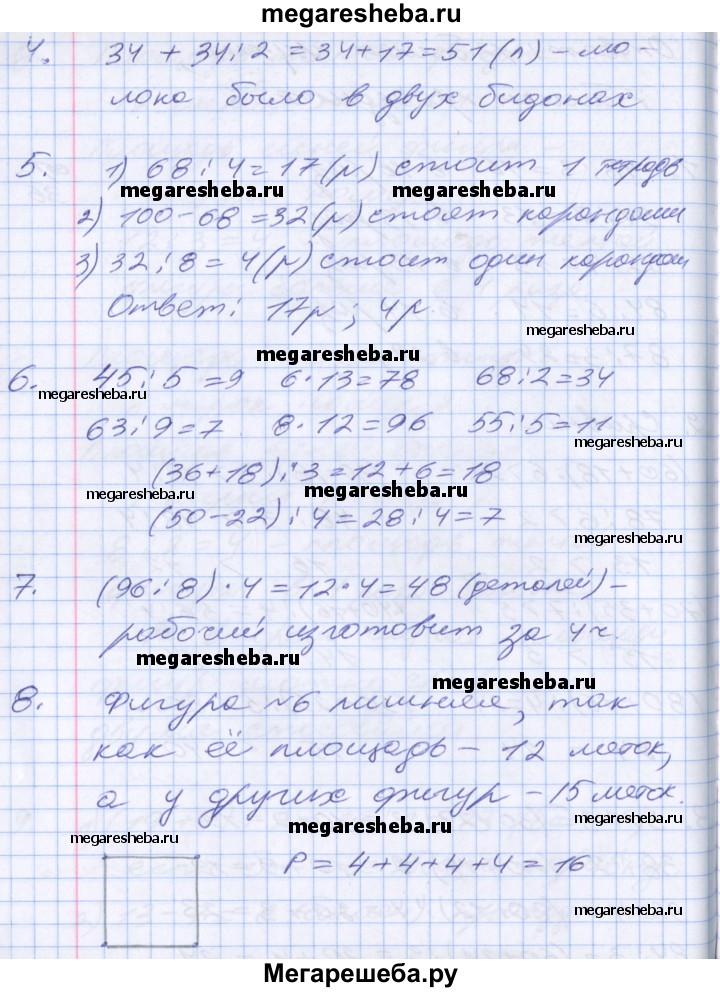 megaresheba.ru
4. 34 + 34 : 2 = 34 + 17 = 51 (л) – мо-
лока было в двух бидонах
5. 1) 68 : 4 = 17 (р) стоит 1 тетрадь
megaresheba.ru megaresheba.ru
2) 100 – 68 = 32 (р) стоят карандаши
3) 32 : 8 = 4 (р) стоит один карандаш
Ответ: 17р ; 4р.
megaresheba.ru
megaresheba.ru
6. 45 : 5 = 9 6 · 13 = 78 68 : 2 = 34
megaresheba.ru
63 : 9 = 7 8 · 12 = 96 55 : 5 = 11
megaresheba.ru
(36 + 18) : 3 = 12 + 6 = 18
megaresheba.ru megaresheba.ru
(50 – 22) : 4 = 28 : 4 = 7
7. (96 : 8) · 4 = 12 · 4 = 48 (деталей) –
рабочий изготовит за 4 ч.
megaresheba.ru
megaresheba.ru
8. Фигура №6 лишняя, так
как её площадь – 12 клеток,
а у других фигур – 15 клеток.
megaresheba.ru
megaresheba.ru
P = 4 + 4 + 4 + 4 = 16
megaresheba.ru
Мегарешеба.ру